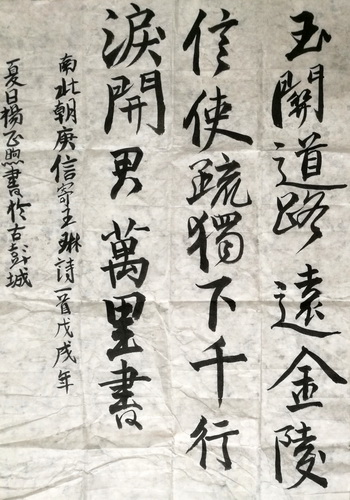 玉關道路遠金陵
信使疏獨下千行
淚開君萬里書
南北朝庾信寄王琳詩一首戊戌年
夏日楊正照書於古彭城